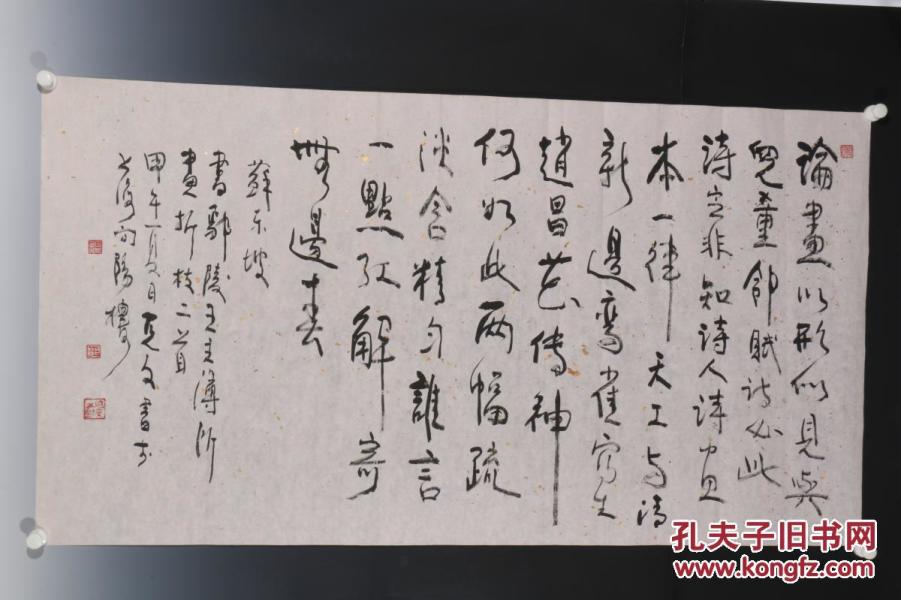 論畫以形似見與
兒童鄰賦詩必此
詩定非知詩人詩畫
本一律天工与清
新邊鸞雀寫生
趙昌花傳神
何如此兩幅疏
淡含精匀誰言
一點紅解寄
無邊春
蘇东坡
書鄢陵王主簿所
畫折枝二首
甲午 月 日 文書于
上海向陽樓
孔夫子旧书网
www.kongfz.com